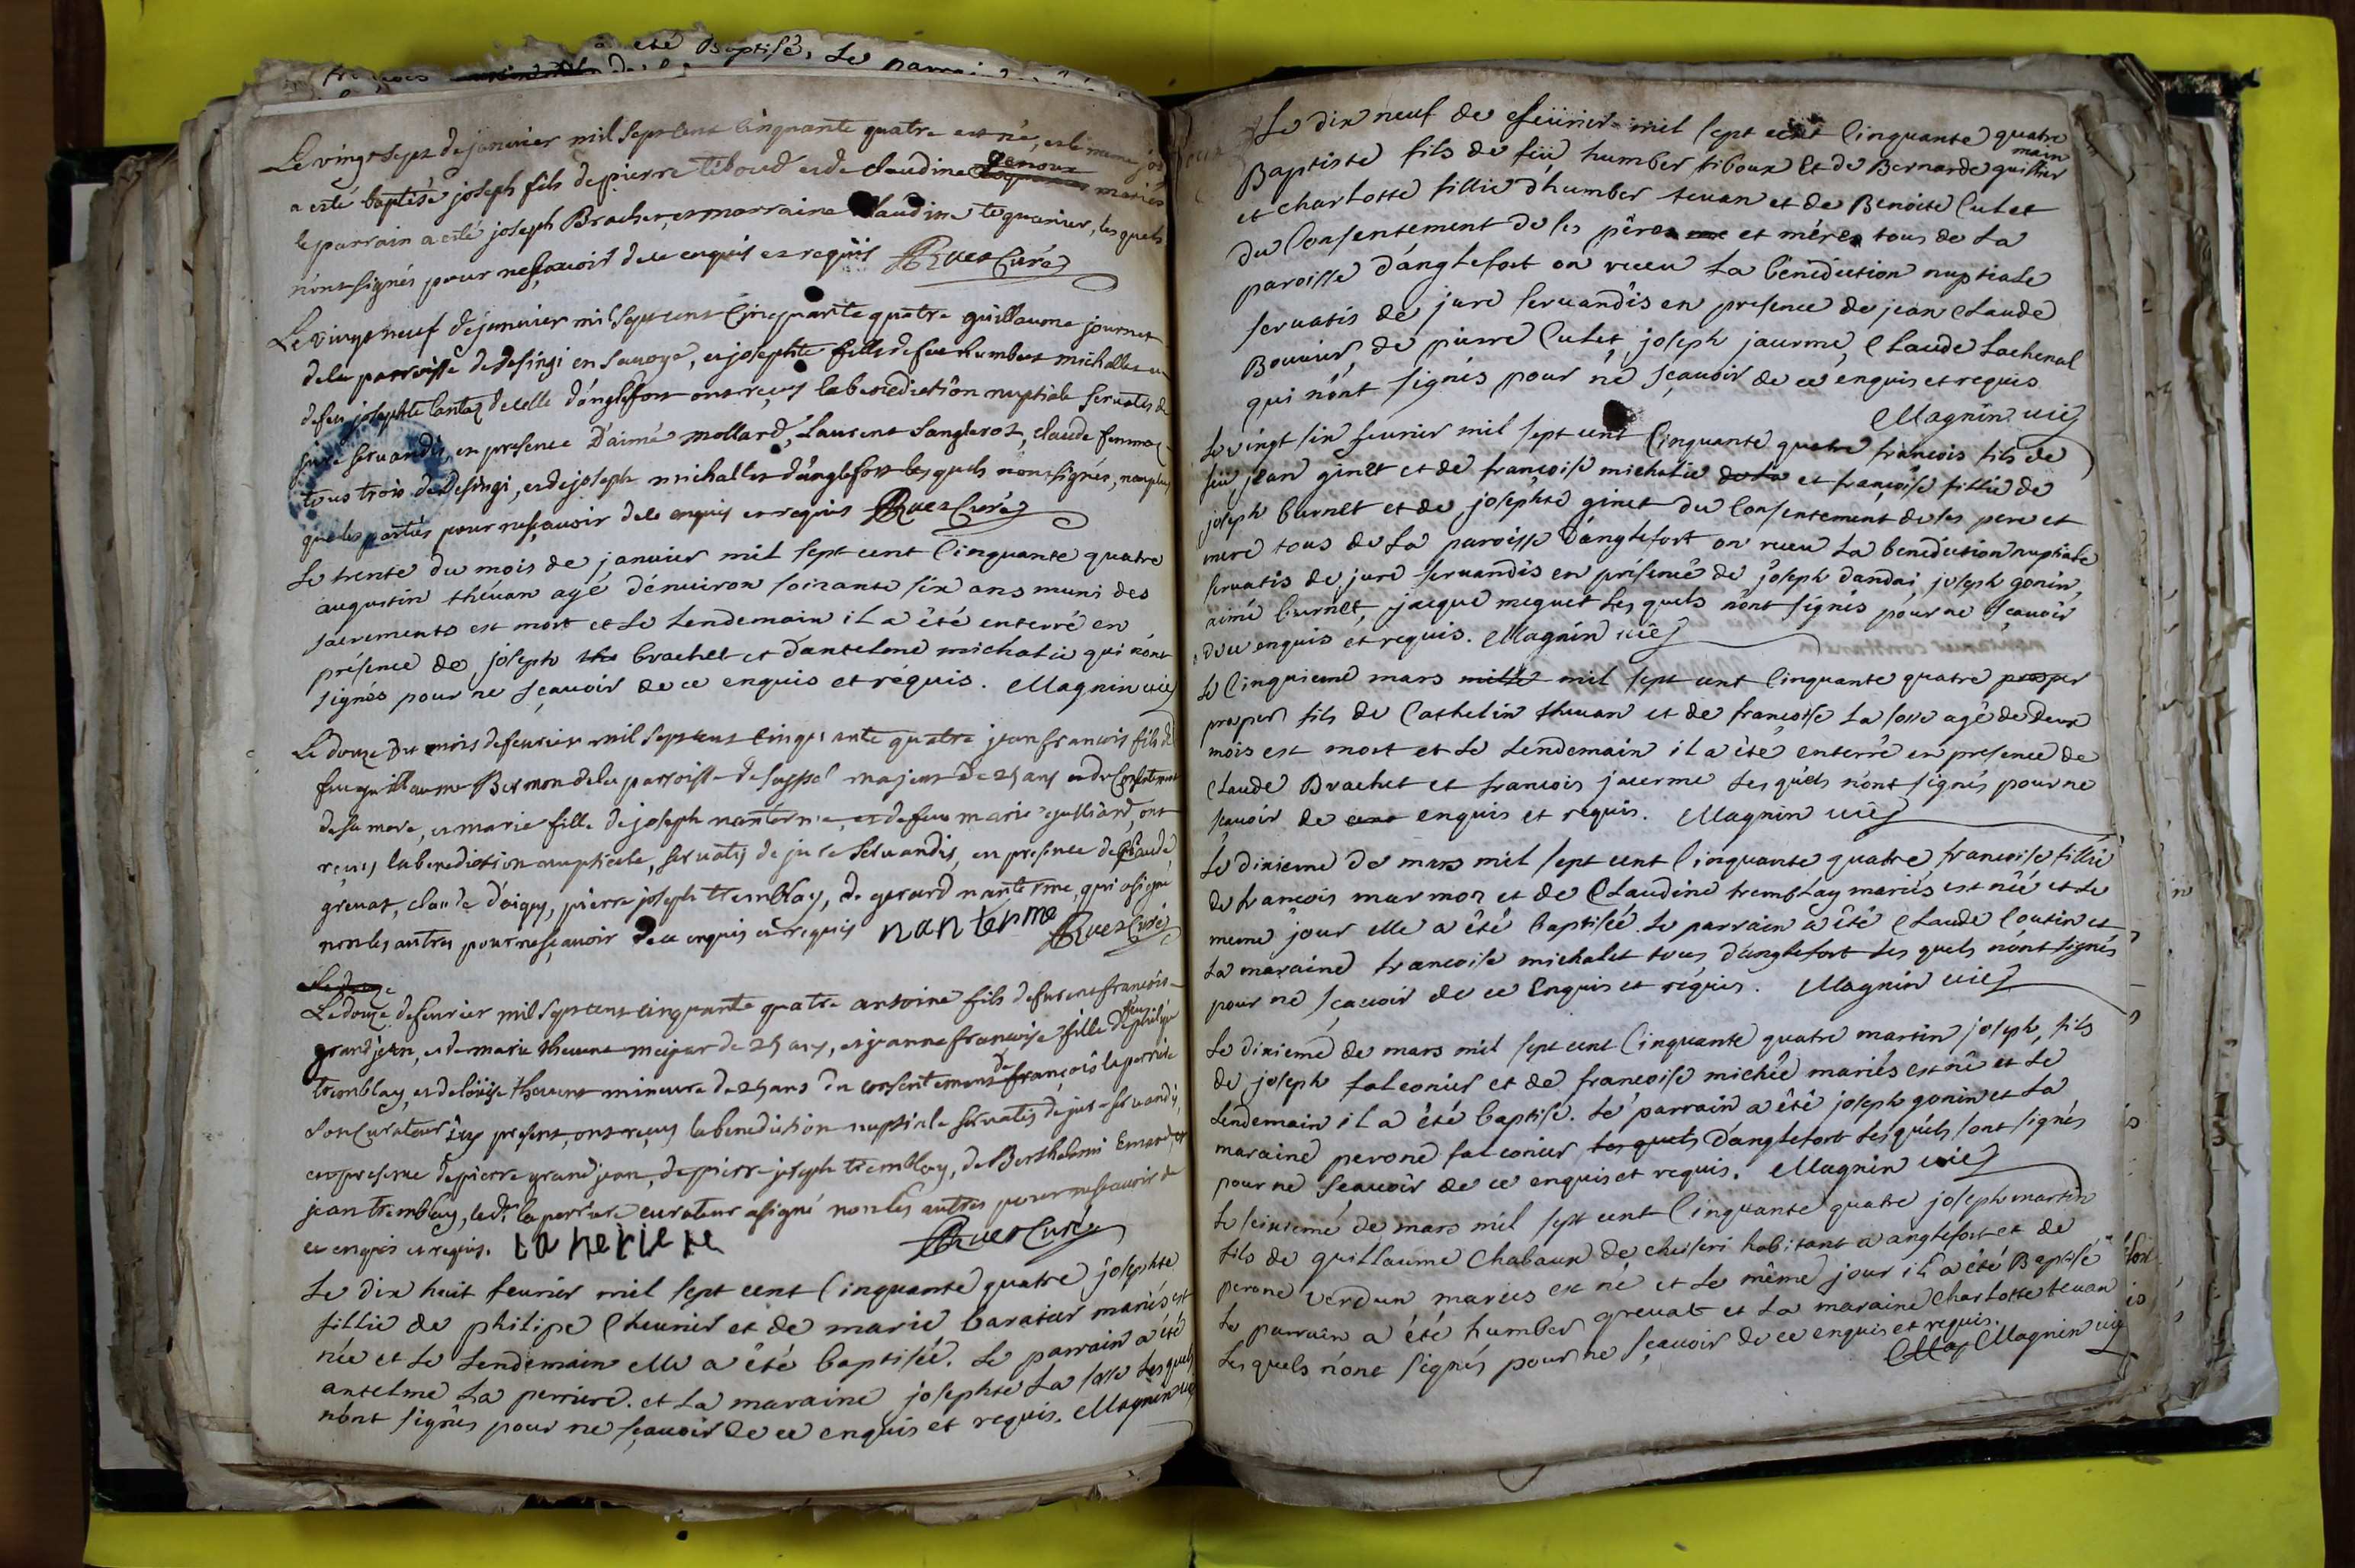 a eté Baptisé, Le parrain
Le vingt sept de janvier mil sept cent cinquante quatre est né, et le meme jo
a esté baptisé joseph fils de pierre teboud et de claudine Genoux mariés
le parrain a esté joseph Brachet, et marraine Claudine teguenier, les quels
n'ont signés pour ne sçavoir de ce enquis et requis Ruez Curé
Le vingt neuf de janvier mil sept cent Cinquante quatre guillaume journet
de la parroisse de desingi en savoye, et josephte fille de feu humbert michallet et
de feu josephte lantaz de celle d'anglefort ont reçus la benediction nuptiale servatis de
jure servandis, en presence d'aimé mollard, Laurent sangleroz, claude femmoz
tous trois de Desingi, et de joseph michallet d'anglefort les quels n'ont signés, non plus
que les parties pour ne sçavoir de ce enquis et requis Ruez Curé
Le trente du mois de janvier mil sept cent Cinquante quatre
augustin thévan agé d'environ soixante six ans muni des
sacrements est mort et le Lendemain il a été enterré en
présence de joseph brachet et d'antelme michalie qui n'ont
signés pour ne sçavoir de ce enquis et réquis. Magnin vic
Le douze du mois de fevrier mil sept cent cinquante quatre jean francois fils de
feu guillaume Bermon de la parroisse de majeur de 25 ans et du Consentement
de sa mere, et marie fille de joseph nanterme, et de feue marie guilliard, ont
reçus la benediction nuptiale, servatis de jure servandis, en presence de Claude
grevat, claude d'oigny, pierre joseph tremblay, de gerard nanterme, qui a signé
non les autres pour ne sçavoir de ce enquis et requis nanterme Ruez Curé
Le douze
Le douze de fevrier mil sept cent cinquante quatre antoine fils de feu francois
grand jean, et de marie thevene majeur de 25 ans, et jeanne francoise fille de feu philipe
tremblay, et de loüise thevene mineure de 25 ans du consentement de françois laperrire
son Curateur icy present, ont reçus la benediction nuptiale servatis de jure servandis,
en presence de pierre grand jean, de pierre joseph tremblay, de Barthelemi Emard, et
jean tremblay, ledt laperrire curateur a signé non les autres pour ne scavoir de
ce enquis et requis. la peRieRe Ruez Curé
Le dix huit fevrier mil sept cent Cinquante quatre josephte
fillie de philipe Chevrier et de marie baratier mariés est
née et le Lendemain elle a été baptisée. Le parrain a été
antelme La perriere. et La maraine josephte La sasse Les quels
n'ont signés pour ne sçavoir de ce enquis et requis. Magnin vic
Le dix neuf de fevrier mil sept cent Cinquante quatre
Baptiste fils de feü humber tiboux et de Bernarde guillier
main
et charlotte fillie d'humber tevan et de Benoite Culet
du Consentement de ses pères et mères tous de La
paroisse d'anglefort on recu La bénédiction nuptiale
servatis de jure servandis en presence de jean Claude
Bouvier de pierre Culet, joseph jacerme, Claude Lachenal
qui n'ont signés pour ne sçavoir de ce enquis et requis
Magnin vic
Le vingt six fevrier mil sept cent Cinquante quatre francois fils de
feu jean ginet et de françoise michalie de La et françoise fillie de
joseph burnet et de josephte ginet du Consentement de ses pere et
mere tous de La paroisse d'anglefort on recu La benediction nuptiale
servatis de jure servandis en présence de joseph dandai, joseph gonin,
aimé burnet, jacque mequet Les quels n'ont signés pour ne sçavoir
de ce enquis et requis. Magnin vic
Le Cinquieme mars mille mil sept cent Cinquante quatre prosper
prosper fils de Cathelin thevan et de françoise La sasse agé de deux
mois est mort et Le Lendemain il a été enterré en presence de
Claude Brachet et francois jacerme Les quels n'ont signés pour ne
scavoir de enquis et requis. Magnin vic
Le dixieme de mars mil sept cent Cinquante quatre, francoise fillie
de francois marmoz et de Claudine tremblay mariés est née et Le
meme jour elle a été baptisée. Le parrain a été Claude Coutin et
La maraine francoise michalet tous d'anglefort Les quels n'ont signés
pour ne sçavoir de ce Enquis et réquis. Magnin vic
Le dixieme de mars mil sept cent Cinquante quatre martin joseph, fils
de joseph falconier et de françoise michée mariés est né et Le
Lendemain il a été baptisé. Le parrain a été joseph gonin et La
maraine perone falconier Les quels d'anglefort Les quels sont signés
pour ne sçavoir de ce enquis et requis. Magnin vic
Le seizieme de mars mil sept cent Cinquante quatre joseph martin
fils de guillaume Chabaux de cheseri habitant a anglefort et de
perone verdun mariés est né et Le même jour il a été Baptisé
Le parrain a été humber grevat et La maraine Charlotte tevan
Les quels n'ont signés pour ne sçavoir de ce enquis et requis.
Mag Magnin vic